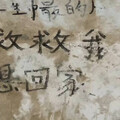 一生中最的
救救我
想回家